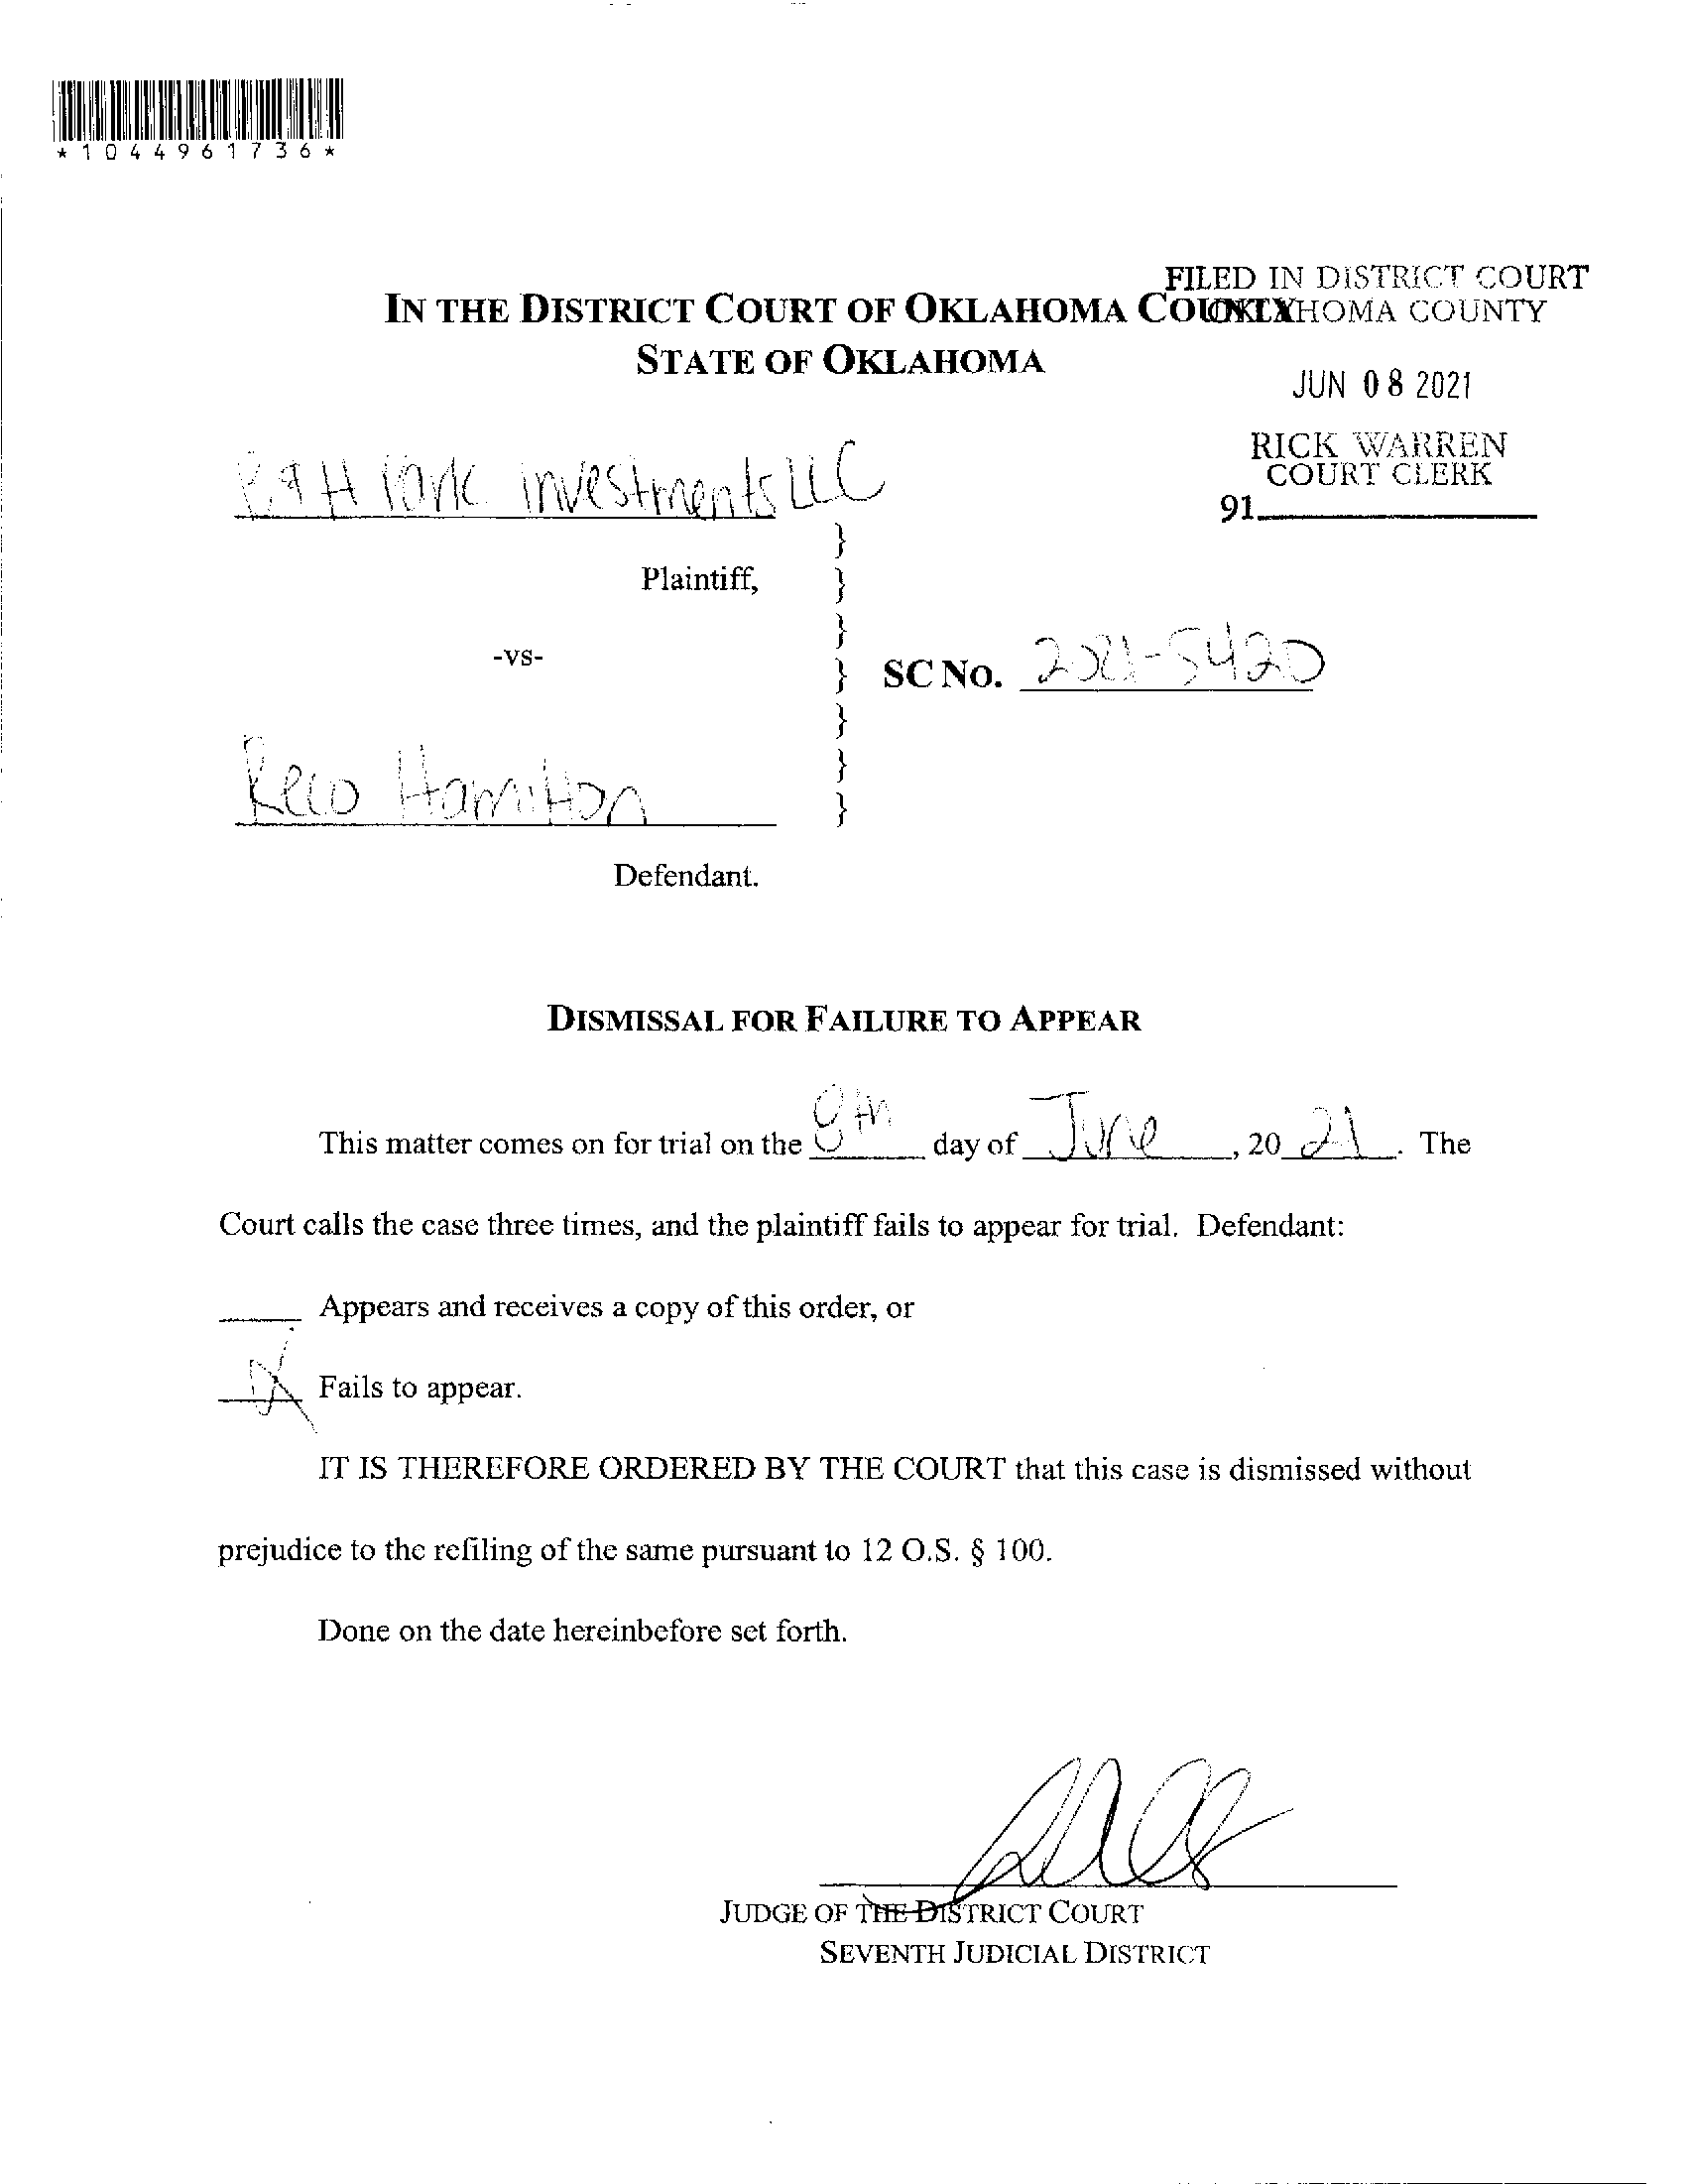 *1044961736*
FILED IN DISTRICT COURT
OKLAHOMA COUNTY
IN THE DISTRICT COURT OF OKLAHOMA COUNTY
STATE OF OKLAHOMA
JUN 08 2021
RICK WARREN
COURT CLERK
91
H Park investments LLC
}
Plaintiff, }
}
-vs-
} SC NO. 2021-5420
}
}
Reco Hamilton }
Defendant.
DISMISSAL FOR FAILURE TO APPEAR
This matter comes on for trial on the 8th day of June, 20 21. The
Court calls the case three times, and the plaintiff fails to appear for trial. Defendant:
Appears and receives a copy of this order, or
X Fails to appear.
IT IS THEREFORE ORDERED BY THE COURT that this case is dismissed without
prejudice to the refiling of the same pursuant to 12 O.S. § 100.
Done on the date hereinbefore set forth.
JUDGE OF THE DISTRICT COURT
SEVENTH JUDICIAL DISTRICT